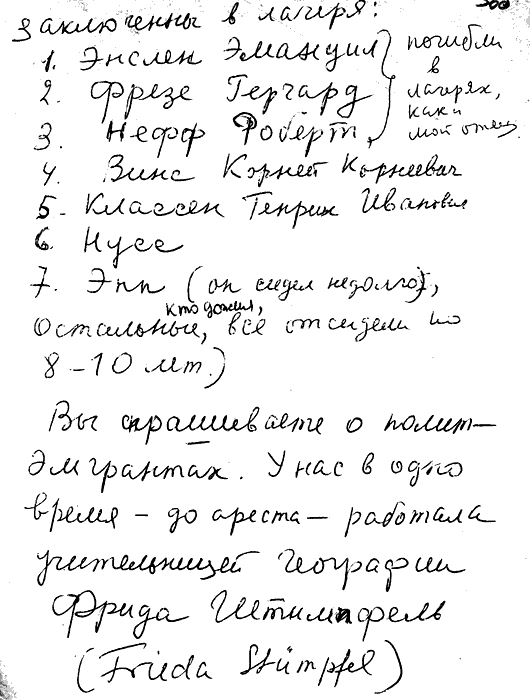 заключены в лагеря:
1. Энслен Эмануил
2. Фрезе Герхард
3. Нефф Роберт,
погибли
в
лагерях,
как и
мой отец.
4. Винс Корней Корнеевич
5. Классен Генрих Иванович
6. Нусс
7. Эпп (он сидел недолго),
Остальные, кто дожил, все отсидели по
8-10 лет.)
Вы спрашиваете о полит-
эмигрантах. У нас в одно
время – до ареста – работала
учительницей географии
Фрида Штимпфель
(Frieda Stümpfel)